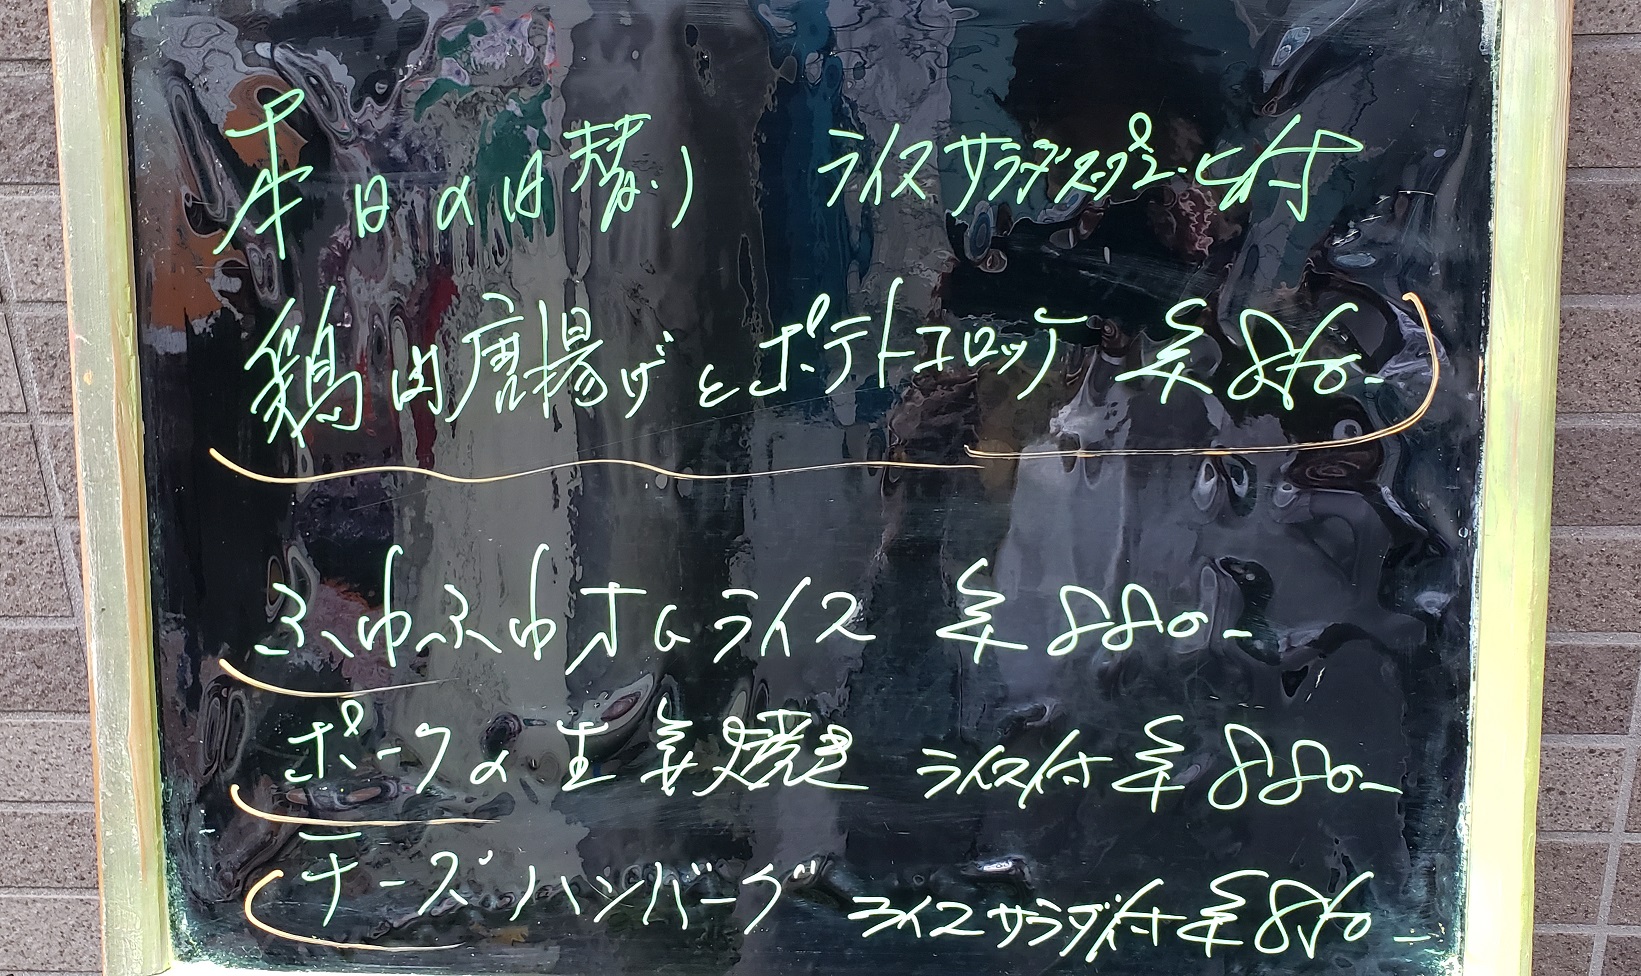 本日の日替り ライスサラダスープコーヒ付
鶏肉唐揚げとポテトコロッケ ¥
ふわふわオムライス ¥880-
ポークの生姜焼き ライス付 ¥880-
チーズハンバーグ ライスサラダ付 ¥